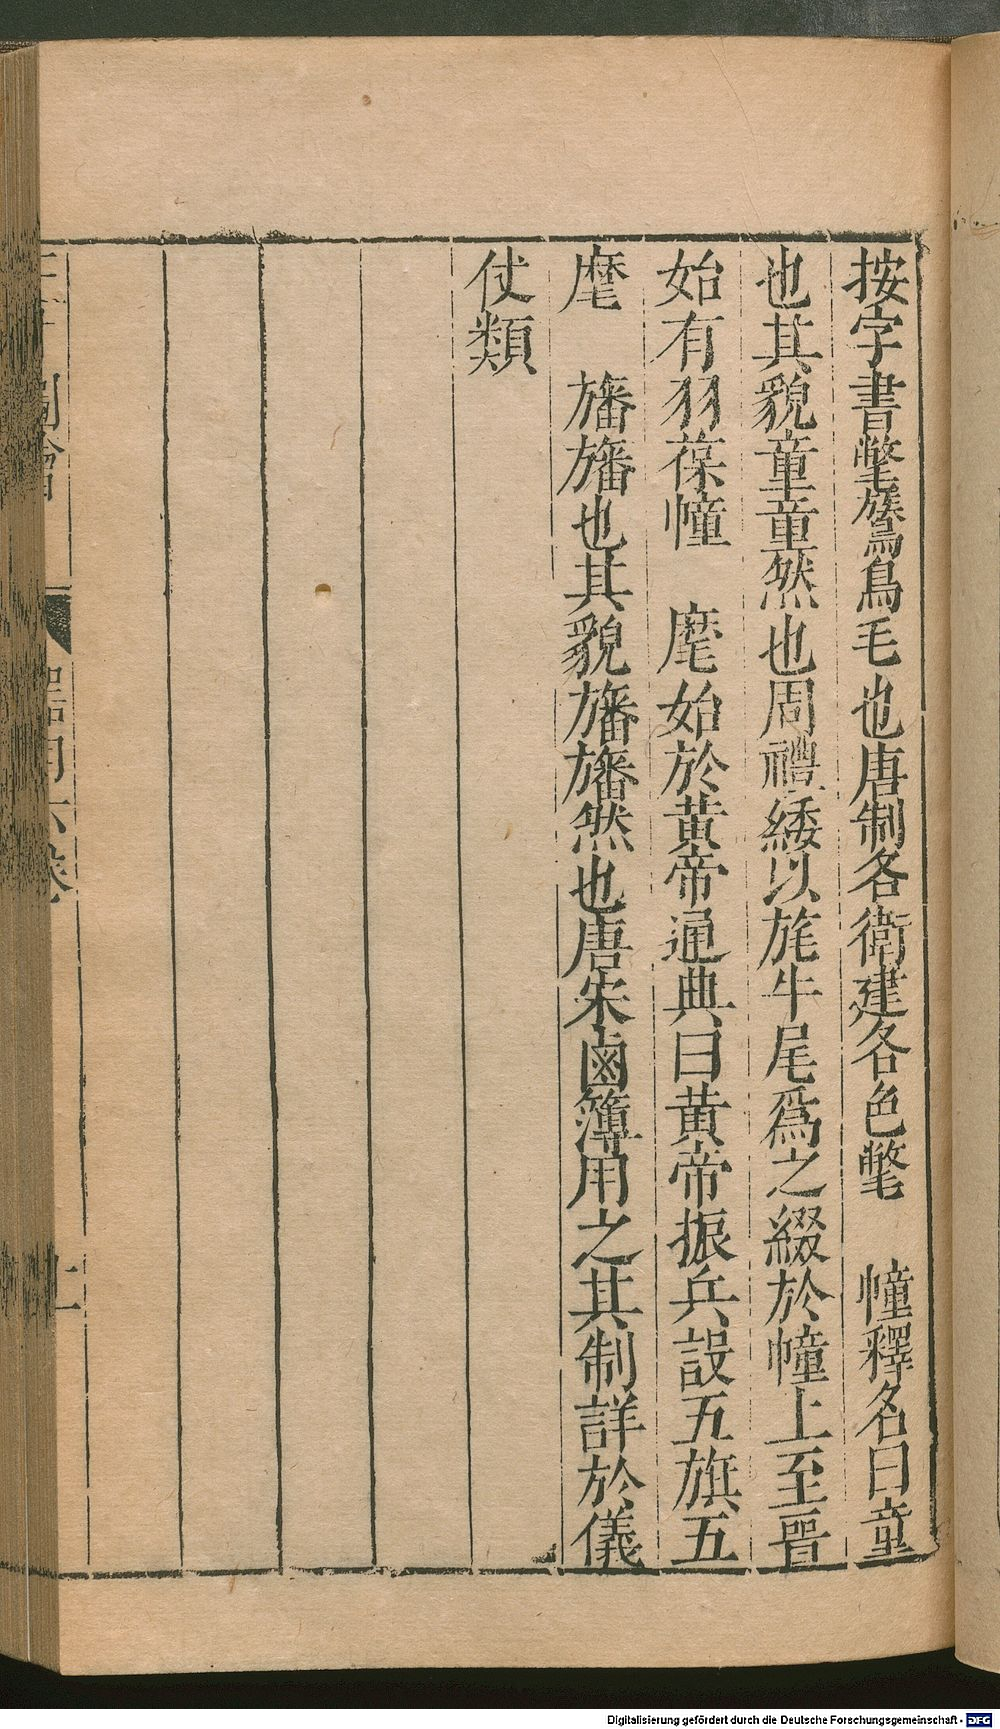 按字書氅鷟鳥毛也唐制各衛建各色氅　幢釋名曰童
也其貌童童然也周禮緌以旄牛尾爲之綴於幢上至晋
始有羽葆幢　麾始於黄帝通典曰黄帝振兵設五旗五
麾　旛旛也其貌旛旛然也唐宋鹵簿用之其制詳於儀
仗類
器用六卷
Digitalisierung gefördert durch die Deutsche Forschungsgemeinschaft - DFG